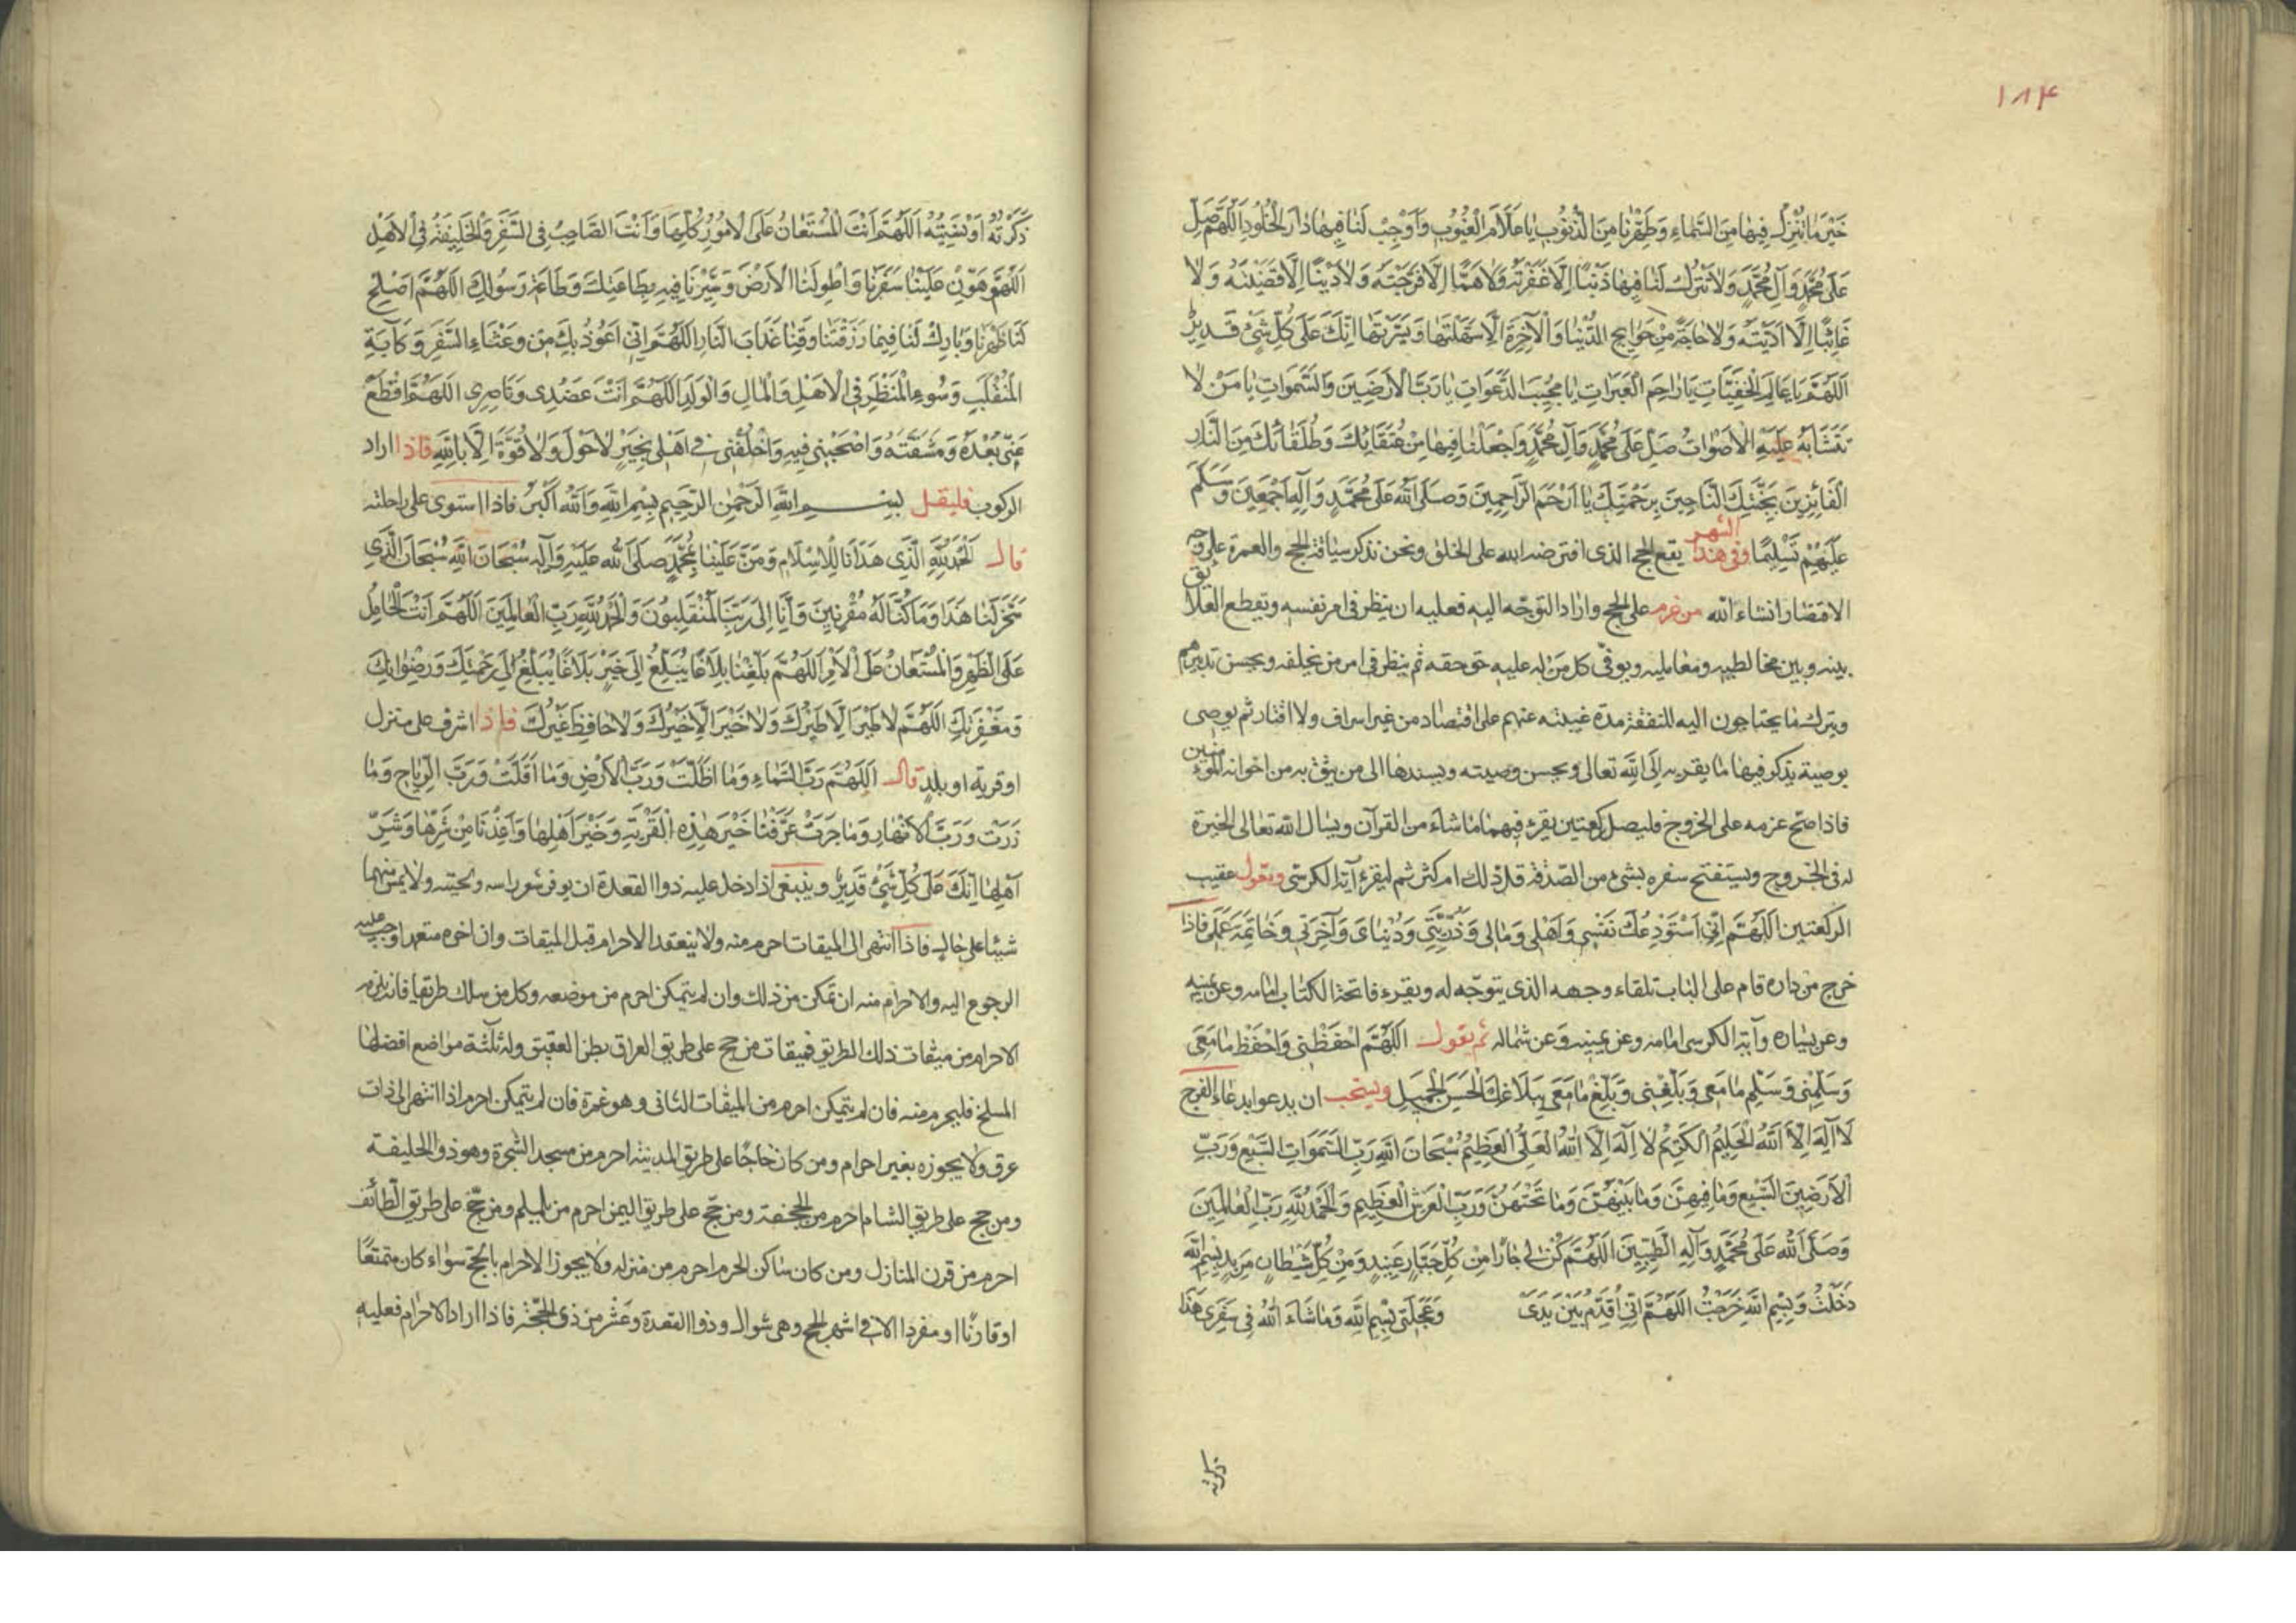 ١٨٤
خَيْرَ مٰا تُنْزِلُ فِيهٰا مِنَ السَّمٰاءِ وَطَهِّرْنٰا مِنَ الذُّنُوبِ يٰا عَلّٰامَ الْغُيُوبِ وَاَوْجِبْ لَنٰا فِيهٰا دٰارَ الْخُلُودِ اَللّٰهُمَّ صَلِّ
عَلىٰ مُحَمَّدٍ وَآلِ مُحَمَّدٍ وَلٰا تَتْرُكْ لَنٰا فِيهٰا ذَنْبًا اِلّٰا غَفَرْتَهُ وَلٰا هَمًّا اِلّٰا فَرَّجْتَهُ وَلٰا دَيْنًا اِلّٰا قَضَيْتَهُ وَلٰا
غٰائِبًا اِلّٰا اَدَّيْتَهُ وَلٰا حٰاجَةً مِنْ حَوٰايِجِ الدُّنْيٰا وَالْآخِرَةِ اِلّٰا سَهَّلْتَهٰا وَيَسَّرْتَهٰا اِنَّكَ عَلىٰ كُلِّ شَيْءٍ قَدِيرٌ
اَللّٰهُمَّ يٰا عٰالِمَ الْخَفِيّٰاتِ يٰا رٰاحِمَ الْعَبَرٰاتِ يٰا مُجِيبَ الدَّعَوٰاتِ يٰا رَبَّ الْاَرَضِينَ وَالسَّمٰوٰاتِ يٰا مَنْ لٰا
تَتَشٰابَهُ عَلَيْهِ الْاَصْوٰاتُ صَلِّ عَلىٰ مُحَمَّدٍ وَآلِ مُحَمَّدٍ وَاجْعَلْنٰا فِيهٰا مِنْ عُتَقٰائِكَ وَطُلَقٰائِكَ مِنَ النّٰارِ
الْفٰائِزِينَ بِجَنَّتِكَ النّٰاجِينَ بِرَحْمَتِكَ يٰا اَرْحَمَ الرّٰاحِمِينَ وَصَلَّى اللّٰهُ عَلىٰ مُحَمَّدٍ وَآلِهِ اَجْمَعِينَ وَسَلَّمَ
عَلَيْهِمْ تَسْلِيمًا وفى هذا الشهر يقع الحج الذى افترضه الله على الخلق ونحن نذكر سياقة الحج والعمرة على وجه
الاقتصار انشاء الله من عزم على الحج واراد التوجّه اليه فعليه ان ينظر فى امر نفسه ويقطع العلايق
بينه وبين مخالطيه ومعامليه ويوفّى كل من له عليه حق حقه ثم ينظر فى امر من يخلفه ويحسن تدبيرهم
ويترك ما يحتاجون اليه للنفقة مدة غيبته عنهم على اقتصاد من غير اسراف ولا اقتار ثم يوصى
بوصية يذكر فيها ما يقربه الى الله تعالى ويحسن وصيته ويسندها الى من يثق به من اخوانه المؤمنين
فاذا صح عزمه على الخروج فليصل ركعتين يقرء فيهما ما شاء من القرآن ويسال الله تعالى الخيرة
له فى الخروج ويستفتح سفره بشىء من الصّدقة قل ذلك ام كثر ثم ليقرء آية الكرسى ويقول عقيب
الركعتين اَللّٰهُمَّ اِنّى اَسْتَوْدِعُكَ نَفْسِى وَاَهْلِى وَمٰالِى وَذُرِّيَّتِى وَدُنْيٰاىَ وَآخِرَتِى وَخٰاتِمَةَ عَمَلِى فاذا
خرج من داره قام على الباب تلقاء وجهه الذى يتوجّه له ويقرء فاتحة الكتاب امامه وعن يمينه
وعن يساره وآية الكرسى امامه وعن يمينه وعن شماله ثم يقول اَللّٰهُمَّ احْفَظْنِى وَاحْفَظْ مٰا مَعِىَ
وَسَلِّمْنِى وَسَلِّمْ مٰا مَعِى وَبَلِّغْنِى وَبَلِّغْ مٰا مَعِىَ بِبَلٰاغِكَ الْحَسَنِ الْجَمِيلِ ويستحب ان يدعو ابدعاء الفرج
لٰا اِلٰهَ اِلَّا اللّٰهُ الْحَلِيمُ الْكَرِيمُ لٰا اِلٰهَ اِلَّا اللّٰهُ الْعَلِىُّ الْعَظِيمُ سُبْحٰانَ اللّٰهِ رَبِّ السَّمٰوٰاتِ السَّبْعِ وَرَبِّ
الْاَرَضِينَ السَّبْعِ وَمٰا فِيهِنَّ وَمٰا بَيْنَهُنَّ وَمٰا تَحْتَهُنَّ وَرَبِّ الْعَرْشِ الْعَظِيمِ وَالْحَمْدُ لِلّٰهِ رَبِّ الْعٰالَمِينَ
وَصَلَّى اللّٰهُ عَلىٰ مُحَمَّدٍ وَآلِهِ الطَّيِّبِينَ اَللّٰهُمَّ كُنْ لِى جٰارًا مِنْ كُلِّ جَبّٰارٍ عَنِيدٍ وَمِنْ كُلِّ شَيْطٰانٍ مَرِيدٍ بِسْمِ اللّٰهِ
دَخَلْتُ وَبِسْمِ اللّٰهِ خَرَجْتُ اَللّٰهُمَّ اِنّى اُقَدِّمُ بَيْنَ يَدَىْ وَعَجَلَتِى بِسْمِ اللّٰهِ وَمٰا شٰاءَ اللّٰهُ فِى سَفَرِى هٰذَا
ذكرته
ذَكَرْتُهُ اَوْ نَسِيتُهُ اَللّٰهُمَّ اَنْتَ الْمُسْتَعٰانُ عَلَى الْاُمُورِ كُلِّهٰا وَاَنْتَ الصّٰاحِبُ فِى السَّفَرِ وَالْخَلِيفَةُ فِى الْاَهْلِ
اَللّٰهُمَّ هَوِّنْ عَلَيْنٰا سَفَرَنٰا وَاطْوِ لَنَا الْاَرْضَ وَسَيِّرْنٰا فِيهِ بِطٰاعَتِكَ وَطٰاعَةِ رَسُولِكَ اَللّٰهُمَّ اَصْلِحْ
لَنٰا ظَهْرَنٰا وَبٰارِكْ لَنٰا فِيمٰا رَزَقْتَنٰا وَقِنٰا عَذٰابَ النّٰارِ اَللّٰهُمَّ اِنّى اَعُوذُ بِكَ مِنْ وَعْثٰاءِ السَّفَرِ وَكَآبَةِ
الْمُنْقَلَبِ وَسُوءِ الْمَنْظَرِ فِى الْاَهْلِ وَالْمٰالِ وَالْوَلَدِ اَللّٰهُمَّ اَنْتَ عَضُدِى وَنٰاصِرِى اَللّٰهُمَّ اقْطَعْ
عَنّى بُعْدَهُ وَمَشَقَّتَهُ وَاصْحَبْنِى فِيهِ وَاخْلُفْنِى فِى اَهْلِى بِخَيْرٍ لٰا حَوْلَ وَلٰا قُوَّةَ اِلّٰا بِاللّٰهِ فاذا اراد
الركوب فليقل بِسْمِ اللّٰهِ الرَّحْمٰنِ الرَّحِيمِ بِسْمِ اللّٰهِ وَاللّٰهُ اَكْبَرُ فاذا استوى على راحلته
قال اَلْحَمْدُ لِلّٰهِ الَّذِى هَدٰانٰا لِلْاِسْلٰامِ وَمَنَّ عَلَيْنٰا بِمُحَمَّدٍ صَلَّى اللّٰهُ عَلَيْهِ وَآلِهِ سُبْحٰانَ اللّٰهِ سُبْحٰانَ الَّذِى
سَخَّرَ لَنٰا هٰذَا وَمٰا كُنّٰا لَهُ مُقْرِنِينَ وَاِنّٰا اِلىٰ رَبِّنٰا لَمُنْقَلِبُونَ وَالْحَمْدُ لِلّٰهِ رَبِّ الْعٰالَمِينَ اَللّٰهُمَّ اَنْتَ الْحٰامِلُ
عَلَى الظَّهْرِ وَالْمُسْتَعٰانُ عَلَى الْاَمْرِ اَللّٰهُمَّ بَلِّغْنٰا بَلٰاغًا يُبَلِّغُ اِلىٰ خَيْرٍ بَلٰاغًا يُبَلِّغُ اِلىٰ رَحْمَتِكَ وَرِضْوٰانِكَ
وَمَغْفِرَتِكَ اَللّٰهُمَّ لٰا طَيْرَ اِلّٰا طَيْرُكَ وَلٰا خَيْرَ اِلّٰا خَيْرُكَ وَلٰا حٰافِظَ غَيْرُكَ فاذا اشرف على منزل
او قرية او بلد قال اَللّٰهُمَّ رَبَّ السَّمٰاءِ وَمٰا اَظَلَّتْ وَرَبَّ الْاَرْضِ وَمٰا اَقَلَّتْ وَرَبَّ الرِّيٰاحِ وَمٰا
ذَرَتْ وَرَبَّ الْاَنْهٰارِ وَمٰا جَرَتْ عَرِّفْنٰا خَيْرَ هٰذِهِ الْقَرْيَةِ وَخَيْرَ اَهْلِهٰا وَاَعِذْنٰا مِنْ شَرِّهٰا وَشَرِّ
اَهْلِهٰا اِنَّكَ عَلىٰ كُلِّ شَيْءٍ قَدِيرٌ وينبغى اذا دخل عليه ذوا القعدة ان يوفر شعر راسه ولحيته ولا يمس منهما
شيئا على حال فاذا انتهى الى الميقات احرم منه ولا ينعقد الاحرام قبل الميقات وان اخره متعمدا وجب عليه
الرجوع اليه والاحرام منه ان تمكن من ذلك وان لم يتمكن احرم من موضعه وكل من سلك طريقا فانه يلزمه
الاحرام من ميقات ذلك الطريق فميقات من حج على طريق العراق بطن العقيق وله ثلثة مواضع افضلها
المسلخ فليحرم منه فان لم يتمكن احرم من الميقات الثانى وهو غمرة فان لم يتمكن احرم اذا انتهى الى ذات
عرق ولا يجوزه بغير احرام ومن كان حاجّا على طريق المدينة احرم من مسجد الشجرة وهو ذو الحليفة
ومن حج على طريق الشام احرم من الجحفة ومن حجّ على طريق اليمن احرم من يلملم ومن حجّ على طريق الطائف
احرم من قرن المنازل ومن كان ساكن الحرم احرم من منزله ولا يجوز الاحرام بالحج سواء كان متمتعًا
او قارنًا او مفردا الا فى اشهر الحج وهى شوال وذوا القعدة وعشر من ذى الحجّة فاذا اراد الاحرام فعليه